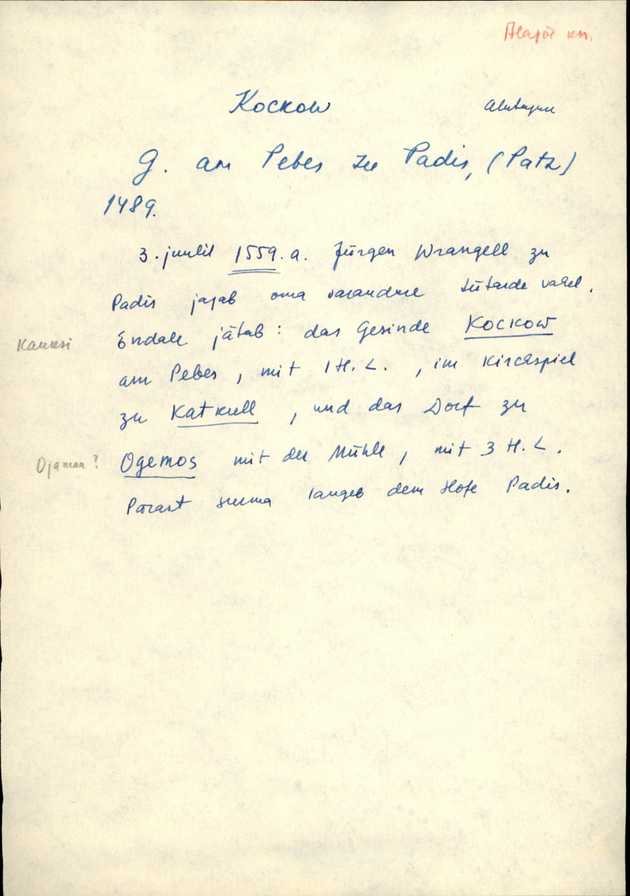 Alajõe km.
Kockow
Alutaguse
G. am Pebes zu Padis, (Patz)
1489.
3. juulil 1559. a. Jürgen Wrangell zu
Padis jagab oma varanduse tütarde vahel.
Kauksi
Endale jätab: das Gesinde Kockow
am Pebes, mit 1 H. L., im Kirchspiel
zu Katkull, und das Dorf zu
Ojamaa?
Ogemos mit der Mühle, mit 3 H. L.
Pärast surma langeb dem Hofe Padis.